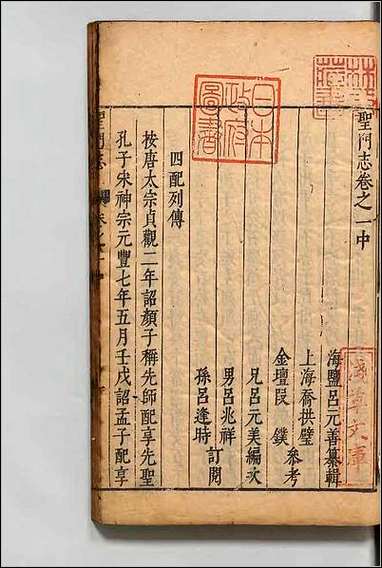 聖門志卷之一中
海鹽呂元善纂輯
上海喬拱璧
金壇段鏷
參考
兄呂元美編次
男呂兆祥
孫呂逢時
訂閱
四配列傳
按唐太宗貞觀二年詔顏子稱先師配享先聖
孔子宋神宗元豐七年五月壬戌詔孟子配享
聖門志
日本
政府
圖書
淺草文庫